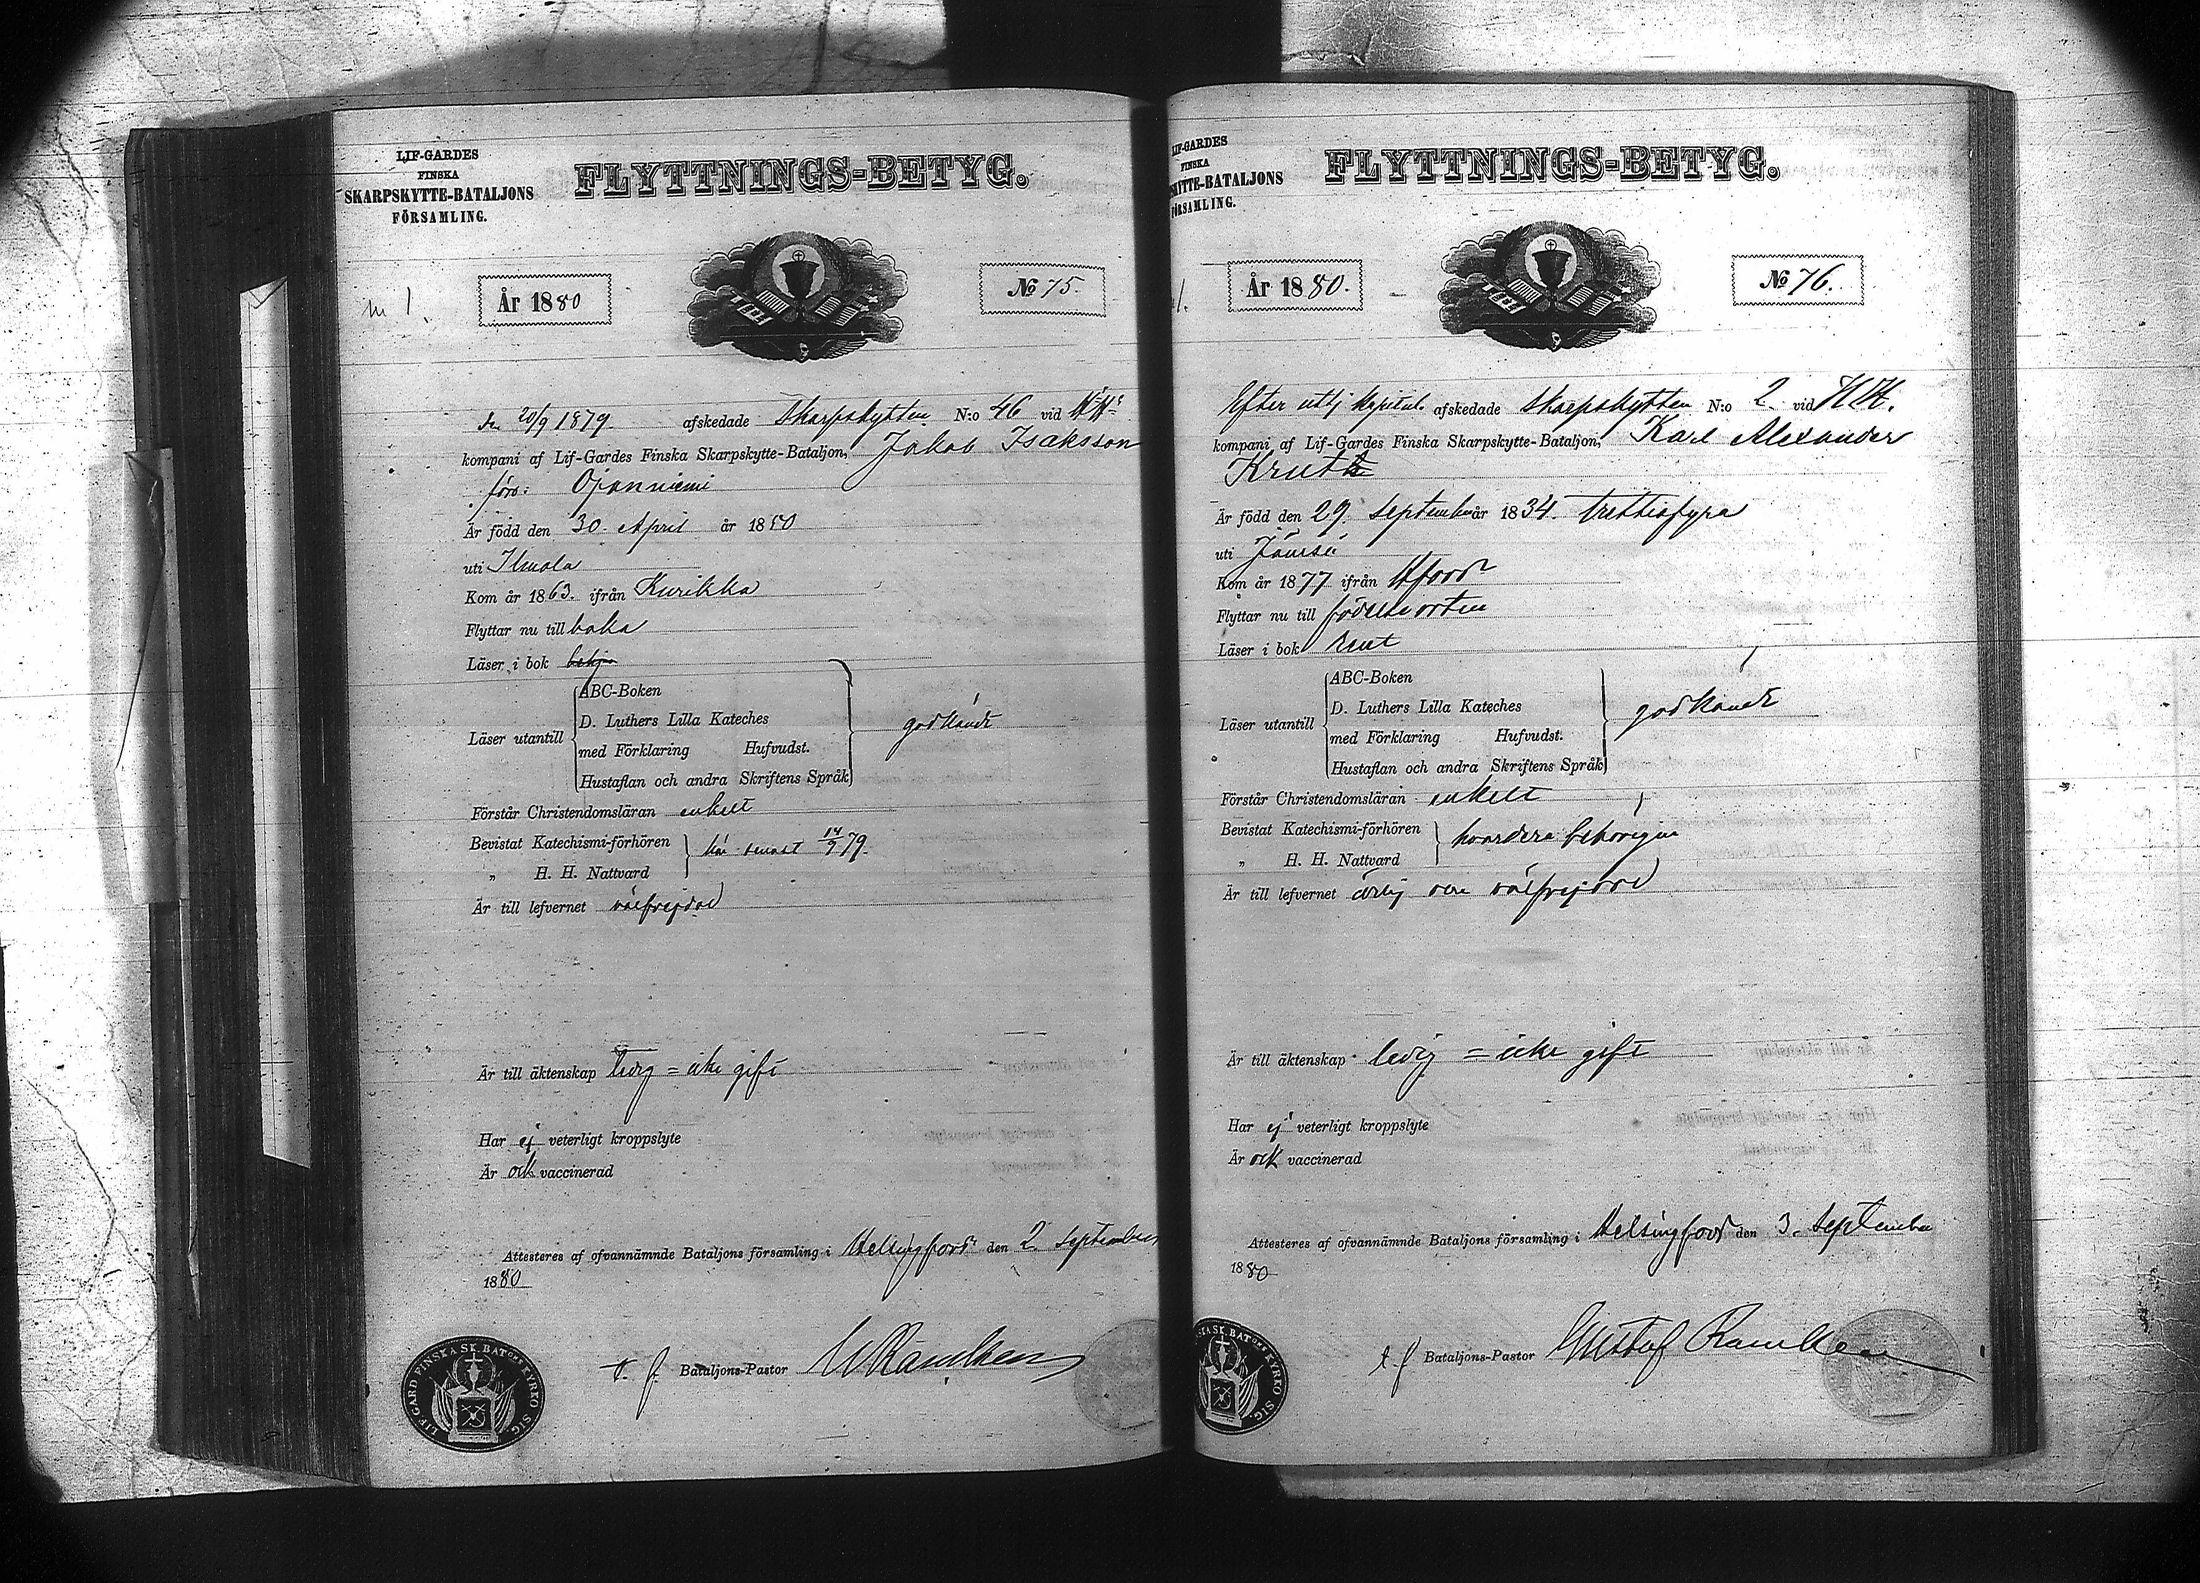 LIF-GARDES
FINSKA
SKARPSKYTTE-BATALJONS
FÖRSAMLING.
FLYTTNINGS-BETYG.
År 1880
No 75.
den 20/9 1879 afskedade Skarpskytten N:o 46 vid
kompani af Lif-Gardes Finska Skarpskytte-Bataljon, Jakob Isaksson
förr: Ojanniemi
Är född den 30. April år 1850
uti Ilmola
Kom år 1863. ifrån Kurikka
Flyttar nu till baka
Läser i bok
ABC-Boken
D. Luthers Lilla Kateches
Läser utantill
med Förklaring Hufvudst.
godkändt
Hustaflan och andra Skriftens Språk
Förstår Christendomsläran enkelt
Bevistat Katechismi-förhören
här senast 14/9 79.
„ H. H. Nattvard
Är till lefvernet välfrejdad
Är till äktenskap ledig = icke gift
Har ej veterligt kroppslyte
Är ock vaccinerad
Attesteres af ofvannämnde Bataljons församling i Helsingfors den 2. September
1880
t. f. Bataljons-Pastor G Ramlken
LIF-GARD FINSKA SK. BAT:ONS KYRKO SIG.
LIF-GARDES
FINSKA
SKYTTE-BATALJONS
FÖRSAMLING.
FLYTTNINGS-BETYG.
År 1880.
No 76.
Efter uttj kapitul. afskedade Skarpskytten N:o 2 vid H.H.
kompani af Lif-Gardes Finska Skarpskytte-Bataljon, Karl Alexander
Krutt
Är född den 29. September år 1834. trettiofyra
uti Jämsä
Kom år 1877 ifrån Hfors
Flyttar nu till födelseorten
Läser i bok rent
ABC-Boken
D. Luthers Lilla Kateches
Läser utantill
med Förklaring Hufvudst.
godkändt
Hustaflan och andra Skriftens Språk
Förstår Christendomsläran enkelt
Bevistat Katechismi-förhören
hvardera behörigen
„ H. H. Nattvard
Är till lefvernet ärlig och välfrejdad
Är till äktenskap ledig = icke gift
Har ej veterligt kroppslyte
Är ock vaccinerad
Attesteres af ofvannämnde Bataljons församling i Helsingfors den 3. September
1880
t. f. Bataljons-Pastor Gustaf Ramlken
SKA SK. BAT:ONS KYRKO SIG.